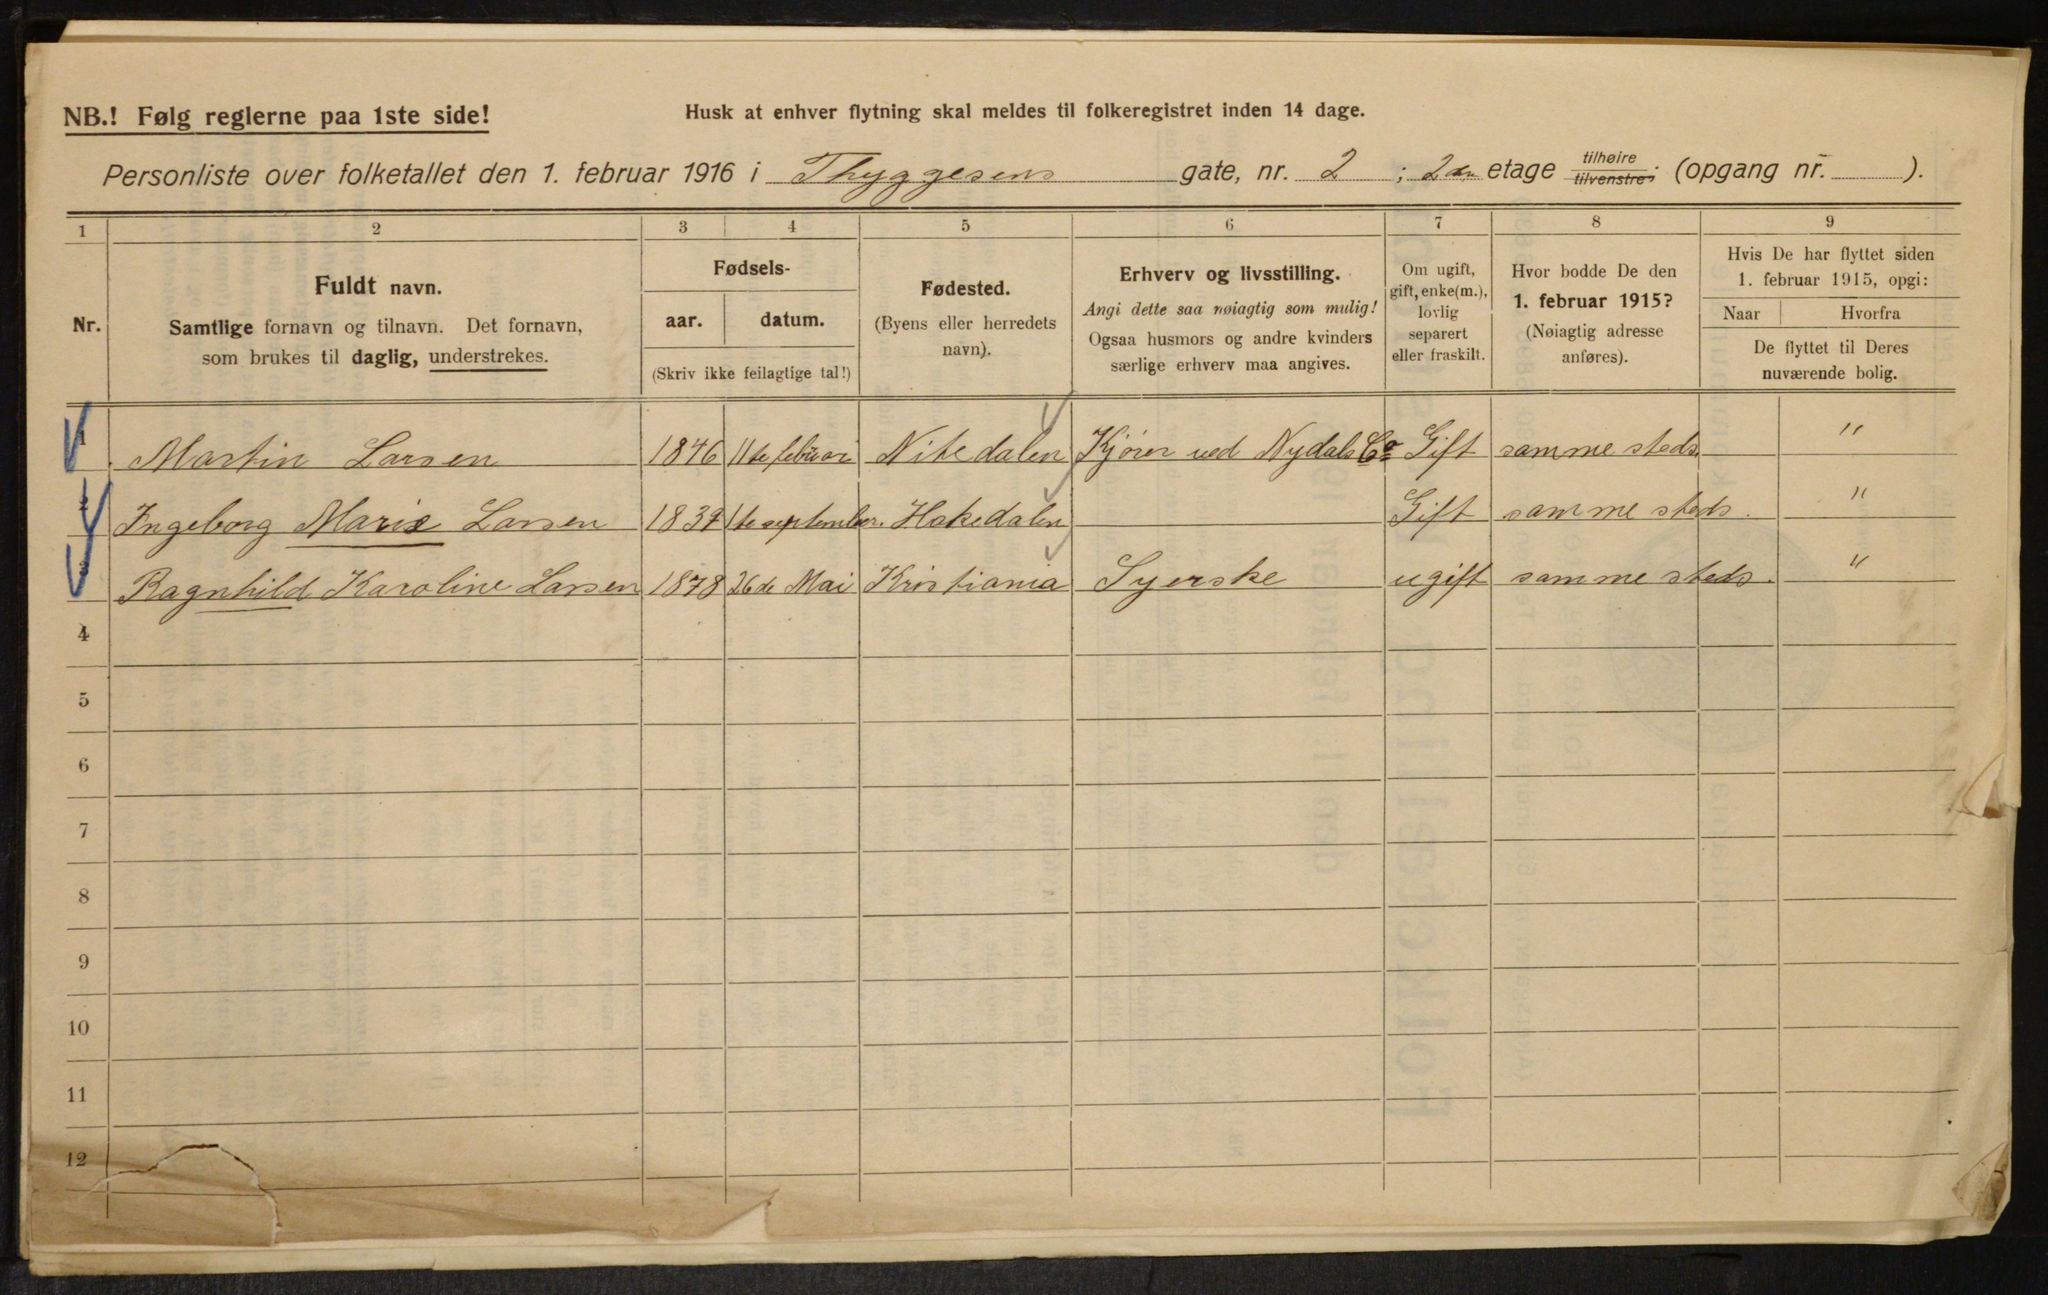 NB.! Følg reglerne paa 1ste side!
Husk at enhver flytning skal meldes til folkeregistret inden 14 dage.
Personliste over folketallet den 1. februar 1916 i Thyggesens gate, nr. 2 ; 2en etage tilhøire tilvenstre; (opgang nr. ).
1 2 3 4 5 6 7 8 9
Nr.
Fuldt navn.
Samtlige fornavn og tilnavn. Det fornavn,
som brukes til daglig, understrekes.
Fødsels-
aar. datum.
(Skriv ikke feilagtige tal!)
Fødested.
(Byens eller herredets
navn).
Erhverv og livsstilling.
Angi dette saa nøiagtig som mulig!
Ogsaa husmors og andre kvinders
særlige erhverv maa angives.
Om ugift,
gift, enke(m.),
lovlig
separert
eller fraskilt.
Hvor bodde De den
1. februar 1915?
(Nøiagtig adresse
anføres).
Hvis De har flyttet siden
1. februar 1915, opgi:
Naar Hvorfra
De flyttet til Deres
nuværende bolig.
1 Martin Larsen 1846 11te februar Nitedalen Kjører ved Nydals Co Gift samme steds. "
2 Ingeborg Marie Larsen 1839 1te september. Hakedalen Gift samme steds. "
3 Ragnhild Karoline Larsen 1878 26de Mai Kristiania Syerske ugift samme steds. "
4
5
6
7
8
9
10
11
12